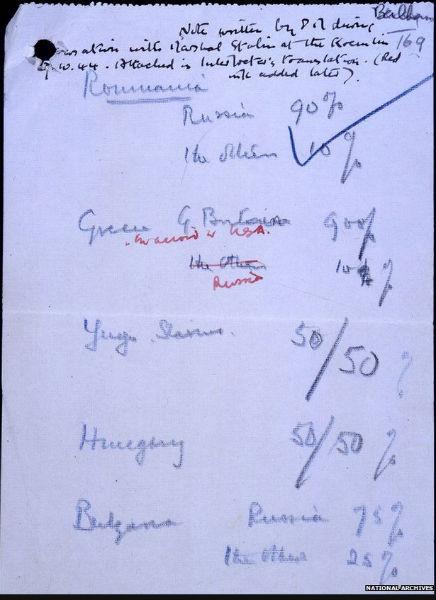 Note written by P.M during
169
ersation with Marshal Stalin at the Kremlin
9.10.44. Attached is Interpreter's translation. (Red
ink added later).
Roumania
Russia 90%
the others 10%
Greece G Britain 90%
in accord w USA.
the others 10%
Russia
Yugo Slavia 50/50 %
Hungary 50/50 %
Bulgaria Russia 75%
the others 25%
NATIONAL ARCHIVES